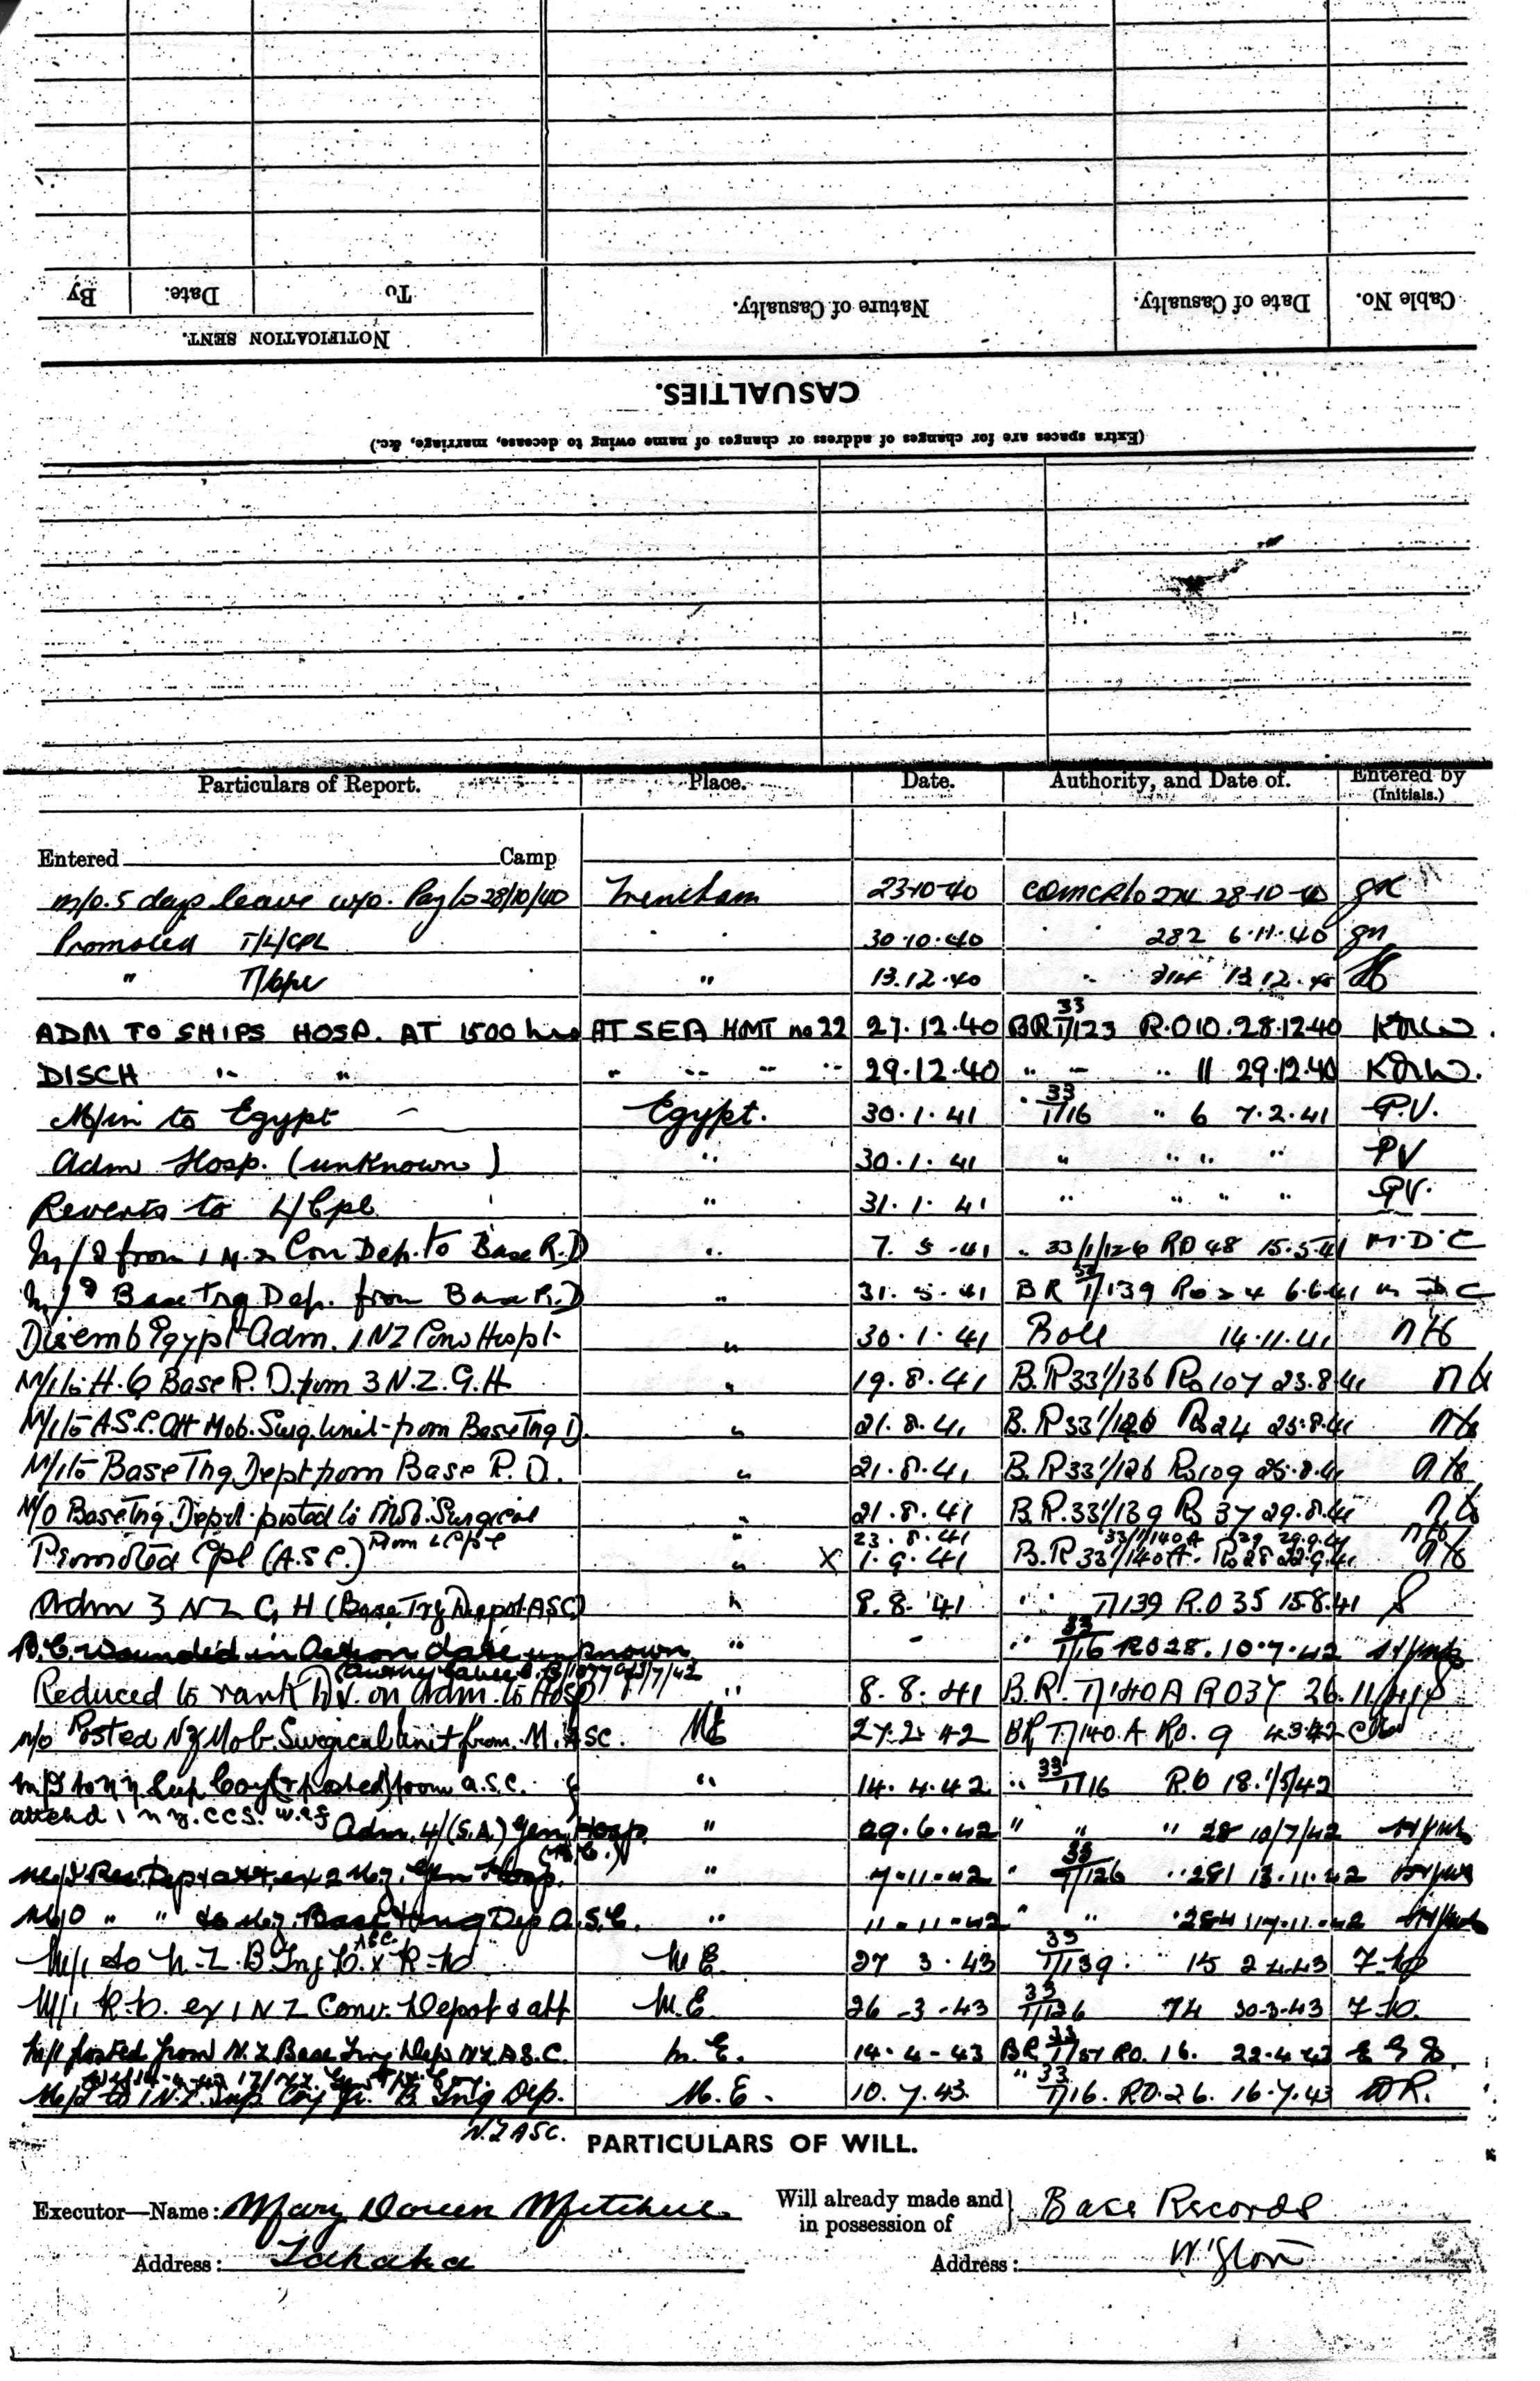 By Date. To Nature of Casualty. Date of Casualty. Cable No.
NOTIFICATION SENT.
CASUALTIES.
(Extra spaces are for changes of address or changes of name owing to decease, marriage, &c.)
Particulars of Report. Place. Date. Authority, and Date of. Entered by (Initials.)
Entered Camp
m/o. 5 days leave w/o. Pay to 28/10/40 Trentham 23.10.40 274 28.10.40
Promoted T/L/CPL " 30.10.40 282 6.11.40
" T/Cpl " 13.12.40 " 314 13.12.40
ADM TO SHIPS HOSP. AT 1500 hrs AT SEA HMT no 22 27.12.40 BR 33/1/123 R.O 10. 28.12.40 KDW.
DISCH " " " " " " 29.12.40 " " " 11 29.12.40 KDW.
M/in to Egypt Egypt. 30.1.41 " 33/1/16 " 6 7.2.41 P.V.
Adm Hosp. (unknown) " 30.1.41 " " " " PV
Reverts to L/Cpl " 31.1.41 " " " " PV.
M/I from 1 N.Z Con Dep. to Base R.D " 7.5.41 " 33/1/126 RO 48 15.5.41 M.D.C
M/I Base Trg Dep. from Base R.D " 31.5.41 BR 33/1/139 Ro 24 6.6.41 M D C
Disemb Egypt Adm. 1 NZ Conv Hospt. " 30.1.41 Roll 14.11.41
M/I to H.Q Base R.D. from 3 N.Z.G.H " 19.8.41 B.R 33/1/136 Ro 107 23.8.41
M/I to A.S.C. Att Mob. Surg. Unit from Base Trng D. " 21.8.41 B.R 33/1/126 Ro 24 25.8.41
M/I to Base Trng Dept from Base R.D. " 21.8.41 B.R 33/1/126 Ro 109 25.8.41
M/O Base Trng Depot posted to Mob. Surgical " 21.8.41 B.R. 33/1/139 Ro 37 29.8.41
" 23.8.41 33/1/140A 29 29.9.41
Promoted Cpl (A.S.C.) From L/Cpl " X 1.9.41 B.R 33/1/140A. Ro 28 22.9.41
Adm 3 NZ G H (Base Trg Depot ASC) " 8.8.41 " 1/139 R.O 35 15.8.41
B.C. wounded in Action date unknown " - " 33/1/16 RO 28. 10.7.42
Reduced to rank Dv. on adm. to Hosp " 8.8.41 B.R. 1/140A RO 37 26.11.41
M/O Posted NZ Mob. Surgical Unit from M. ASC. ME 27.2.42 BR 1/140.A RO. 9 4.3.42
Sup Coy (& posted) from A.S.C. " 14.4.42 " 33/1/16 R.O 18. 1/5/42
attchd 1 n.z. C.C.S. w.e.f
Adm. 4/(S.A.) Gen Hosp. " 29.6.42 " " " 28 10/7/42
Res. Dep & att. ex 2 N.Z. Gen Hosp. " 7.11.42 " 33/1/126 " 281 13.11.42
M/O " " to N.Z. Base trng Dep A.S.C. " 11.11.42 " " 284 17.11.42
M/I to N.Z. B. Trng D. ASC x R.D M.E. 27 3.43 33/1/139. " 15 2.4.43
M/I R.D. ex 1 NZ Conv. Depot & att M.E. 26.3.43 33/1/126 74 30.3.43
M/I posted from N.Z Base Trng Dep NZ A.S.C. M.E. 14.4.43 BR RO. 16. 22.4.43
M/I to 1 N.Z. Sup. Coy fr. B. Trng Dep. M.E. 10.7.43 " 33/1/16. RO. 26. 16.7.43 WR.
N.Z ASC.
PARTICULARS OF WILL.
Executor—Name: Mary Doreen Mitchell Will already made and in possession of } Base Records
Address: Takaka Address: W'gton